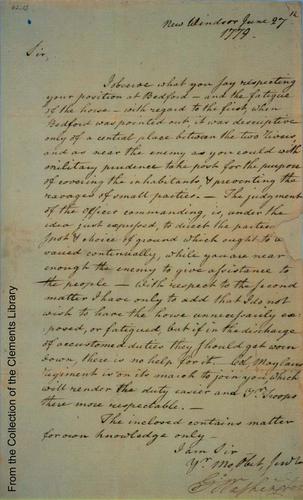 New Windsor June 27th
1779.
Sir,
I observe what you say respecting
your position at Bedford – and the fatigue
of the horse – with regard to the first, when
Bedford was pointed out it was descriptive
only of a central place between the two rivers
and as near the enemy as you could with
military prudence take post for the purpose
of covering the inhabitants, & preventing the
ravages of small parties. – The judgment
of the officer commanding, is, under the
idea just expressed, to direct the particular
post & choice of ground which ought to be
varied continually, while you are near
enough the enemy to give assistance to
the people – With respect to the second
matter I have only to add that I do not
wish to have the horse unnecessarily ex-
posed, or fatigued, but if in the discharge
of accustomed duties they should get worn
down, there is no help for it. – Col. Moylans
regiment is on its march to join you, which
will render the duty easier and yr. Troops
there more respectable. –
The inclosed contains matter
for own knowledge only –
I am Sir
Yr. Mo. Obt. Servt.
Go: Washington
From the Collection of the Clements Library